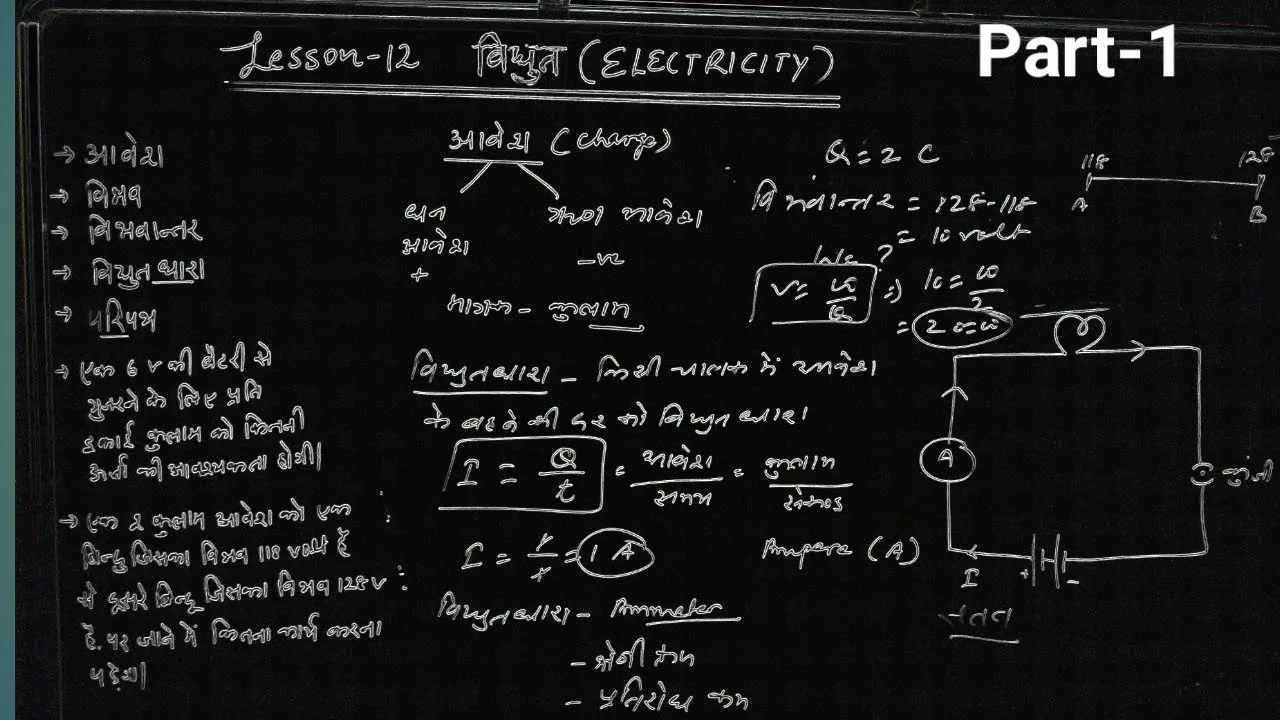 Lesson-12 विद्युत (ELECTRICITY)
Part-1
→ आवेश
→ विभव
→ विभवान्तर
→ विद्युत धारा
→ परिपथ
→ एक 6 V की बैटरी से
गुजरने के लिए प्रति
इकाई कुलाम को कितनी
ऊर्जा की आवश्यकता होगी।
→ एक 2 कुलाम आवेश को एक
बिन्दु जिसका विभव 118 volt है
से दूसरे बिन्दू जिसका विभव 128 V
है. पर जाने में कितना कार्य करना
पड़ेगा।
आवेश (charge)
धन
आवेश
+
ऋण आवेश
-ve
मात्रक - कुलाम
विद्युत धारा - किसी चालक में आवेश
के बहने की दर को विद्युत धारा
I = Q/t = आवेश/समय = कुलाम/सेकण्ड
= 1 A
Ampere (A)
विद्युत धारा - Ammeter
- श्रेणी क्रम
- प्रतिरोध कम
Q = 2 C
विभवान्तर = 128-118
= 10 volt
118
128
A
B
A
I
+
-
कुंजी